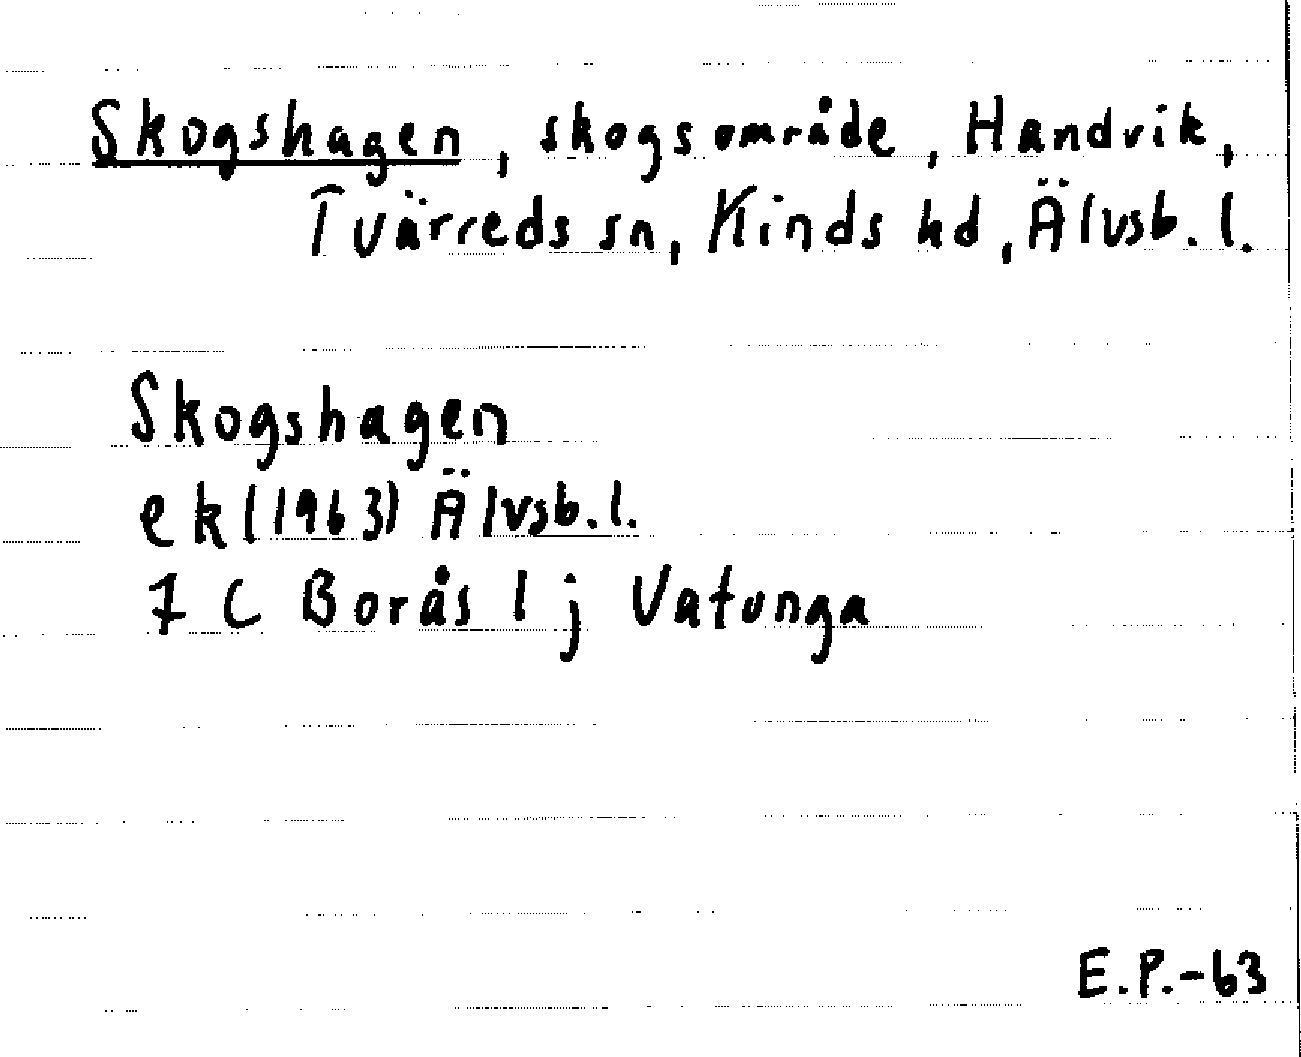 Skogshagen, skogsområde, Handvik,
Tvärreds sn, Kinds hd, Älvsb. l.
Skogshagen
ek (1963) Älvsb. l.
7 C Borås 1 j Vatunga
E.P.-63